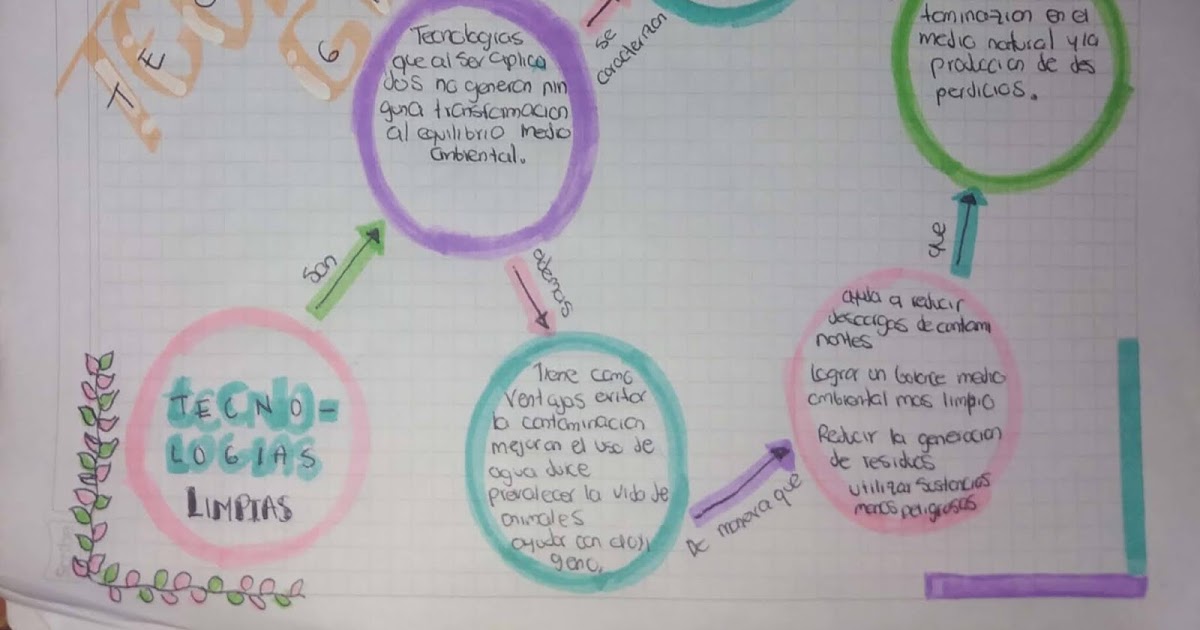 Tecnologias
que al ser aplica
dos no generan nin
guna transformacion
al equilibrio medio
ambiental.
se
caracterizan
taminazion en el
medio natural y la
produccion de des
perdicios.
son
ademas
que
TECNO=
LOGIAS
LIMPIAS
Tiene como
ventajas evitar
la contaminacion
mejoran el uso de
agua dulce
prevalecer la vida de
animales
ayudar con el oxi
geno.
De manera que
ayuda a reducir
descargas de contami
nantes
lograr un balance medio
ambiental mas limpio
Reducir la generacion
de residuos
utilizar sustancias
menos peligrosas